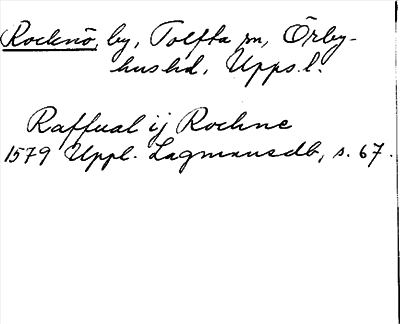 Rocknö, by, Tolfta sn, Örby-
hus hd, Upps. l.
Raffual ij Rockne
1579 Uppl. Lagmansdb, s. 67.